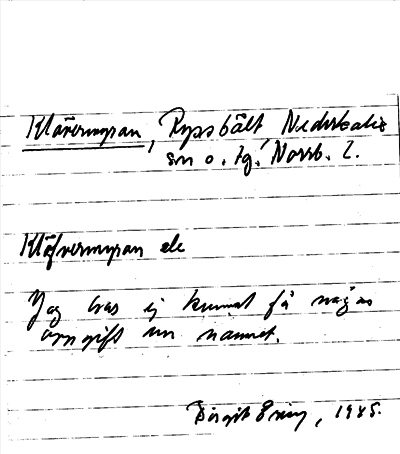 Klövermyran, Ryssbält Nederkalix
sn o. tg. Norrb. l.
Klöfvermyran ek
Jag har ej kunnat få någon
uppgift om namnet.
Birgit 1985.